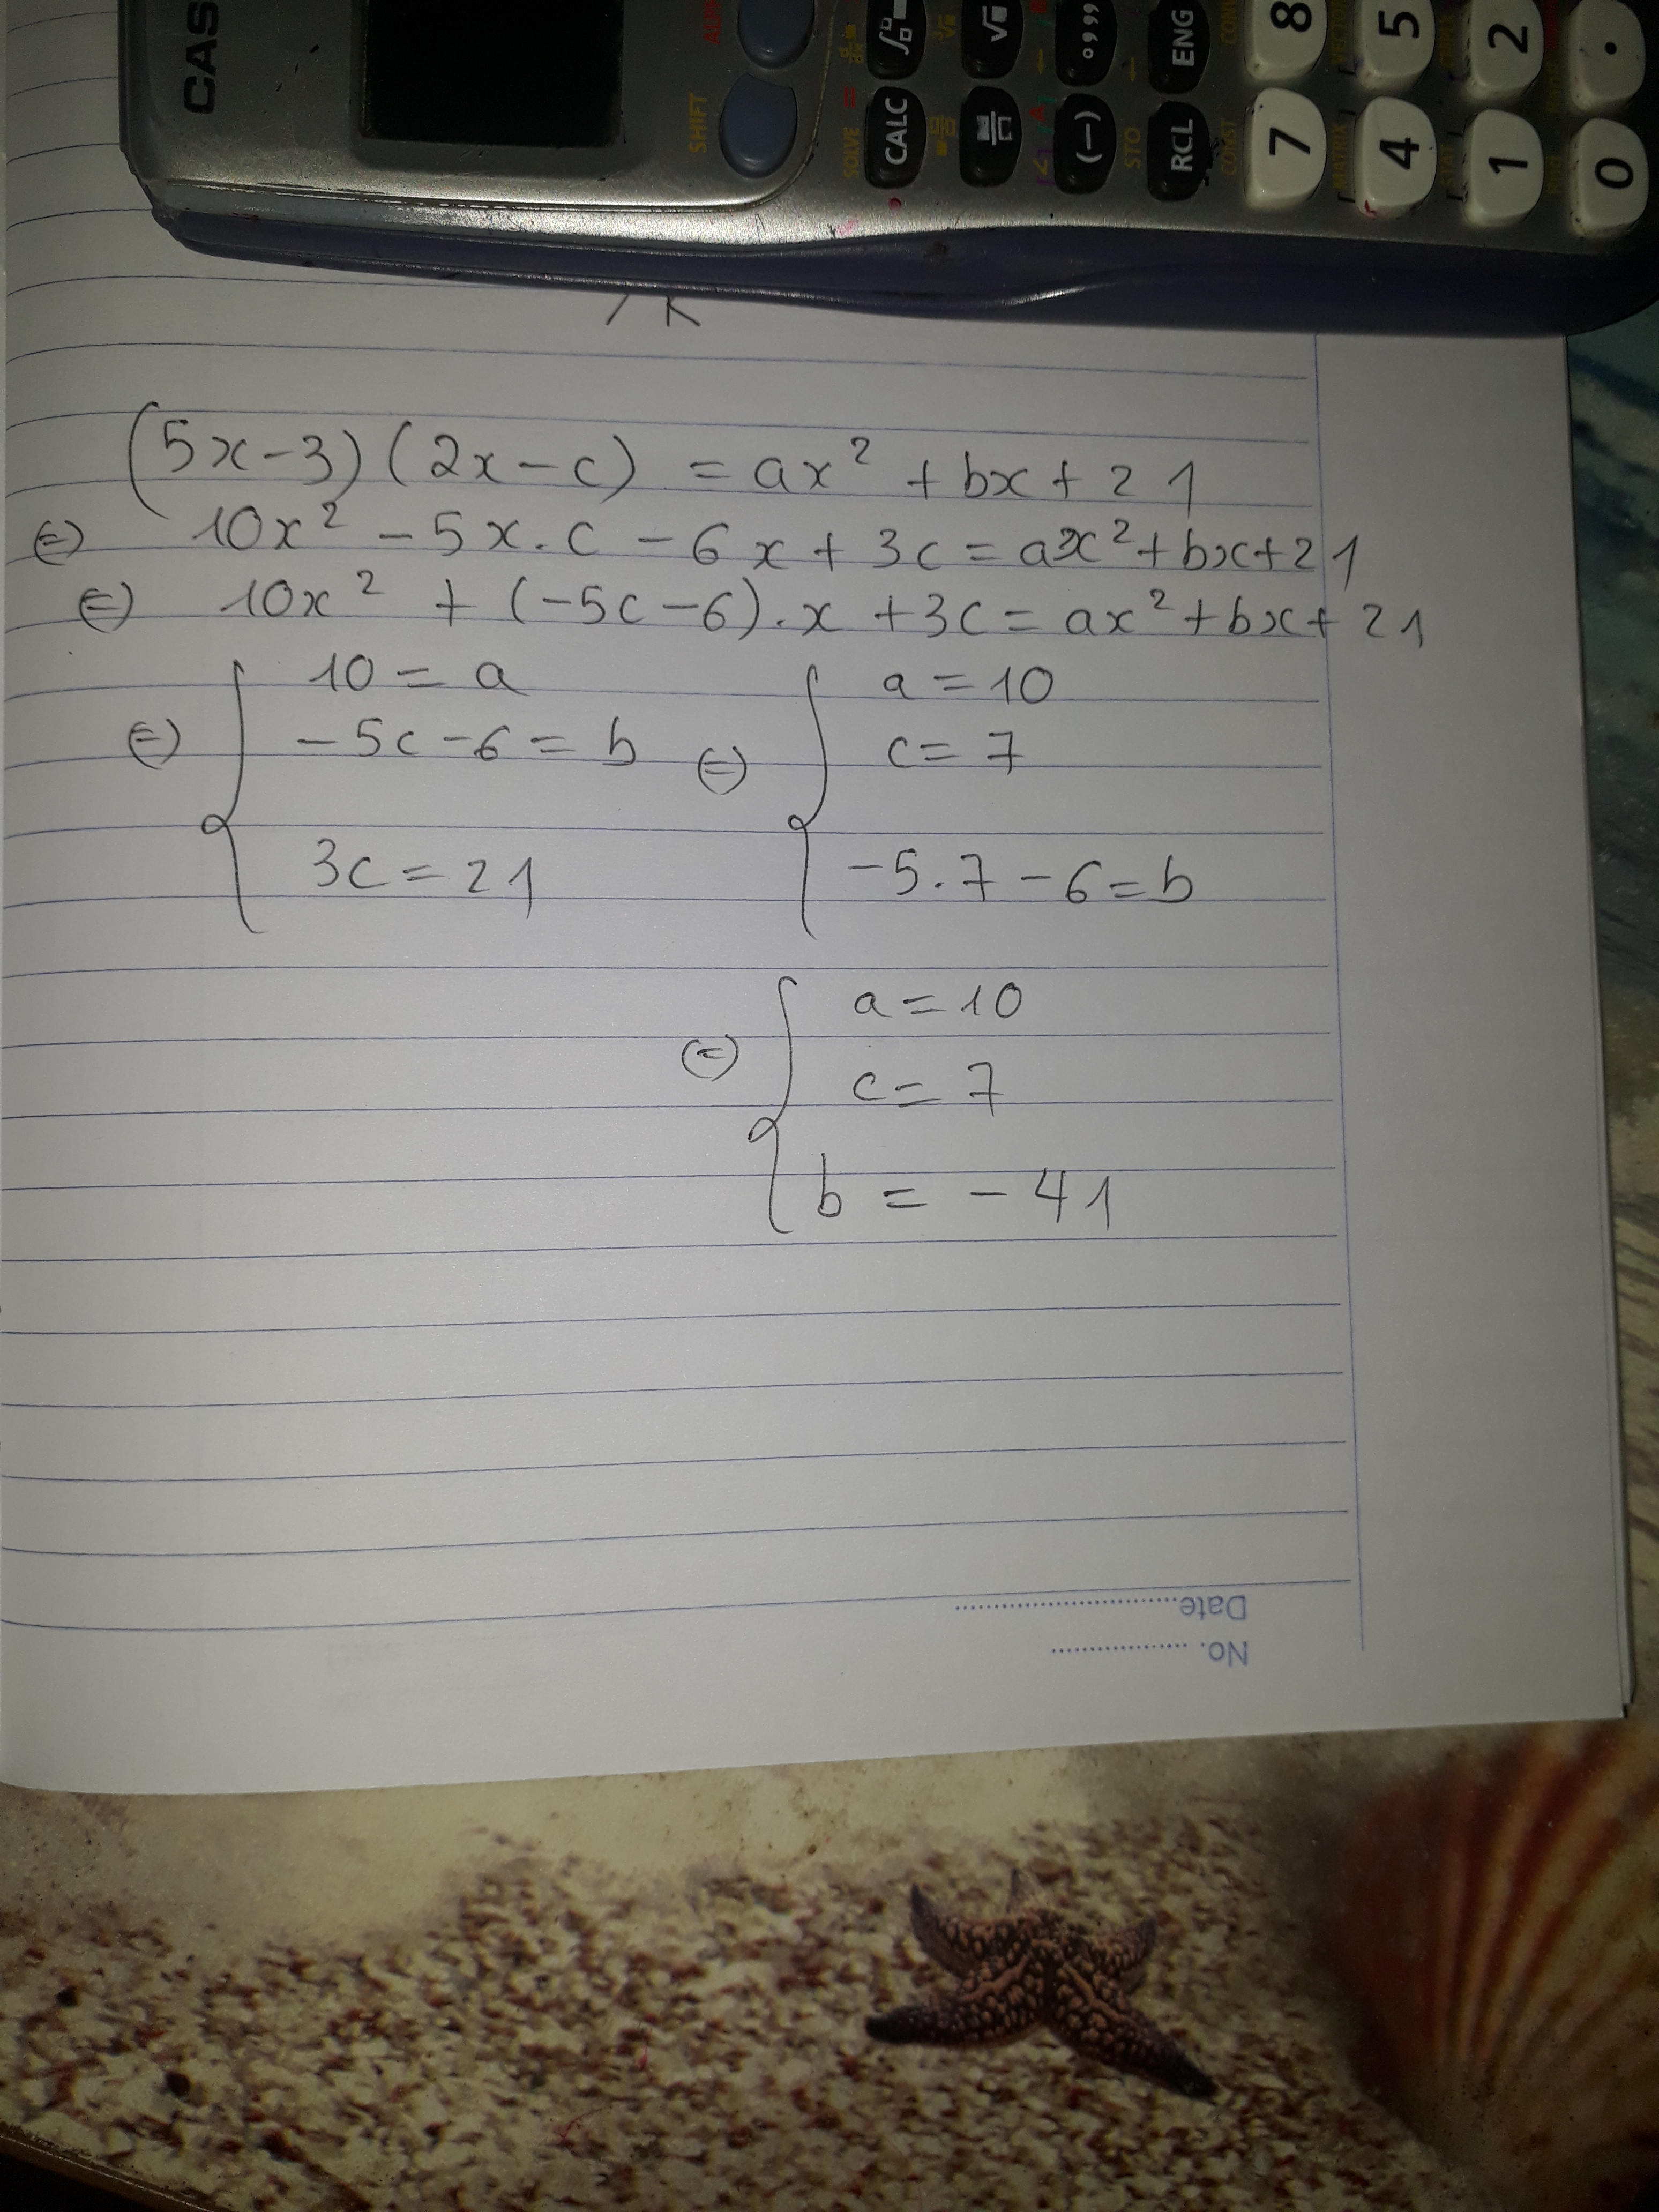 CAS
SHIFT
SOLVE =
CALC
√
(-)
° ' "
STO
RCL
ENG
CONST
7
8
MATRIX
VECTOR
4
5
1
2
0
.
(5x-3)(2x-c) = ax² + bx + 21
⇔ 10x² - 5x.c - 6x + 3c = ax² + bx + 21
⇔ 10x² + (-5c-6).x + 3c = ax² + bx + 21
⇔ { 10 = a ⇔ { a = 10
-5c - 6 = b c = 7
3c = 21 -5.7 - 6 = b
⇔ { a = 10
c = 7
b = -41
Date
No.